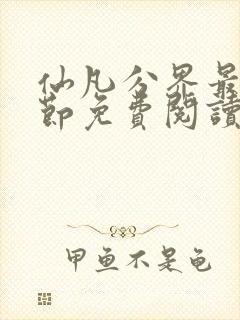 仙凡分界最
節免費閱讀
甲魚不是龜